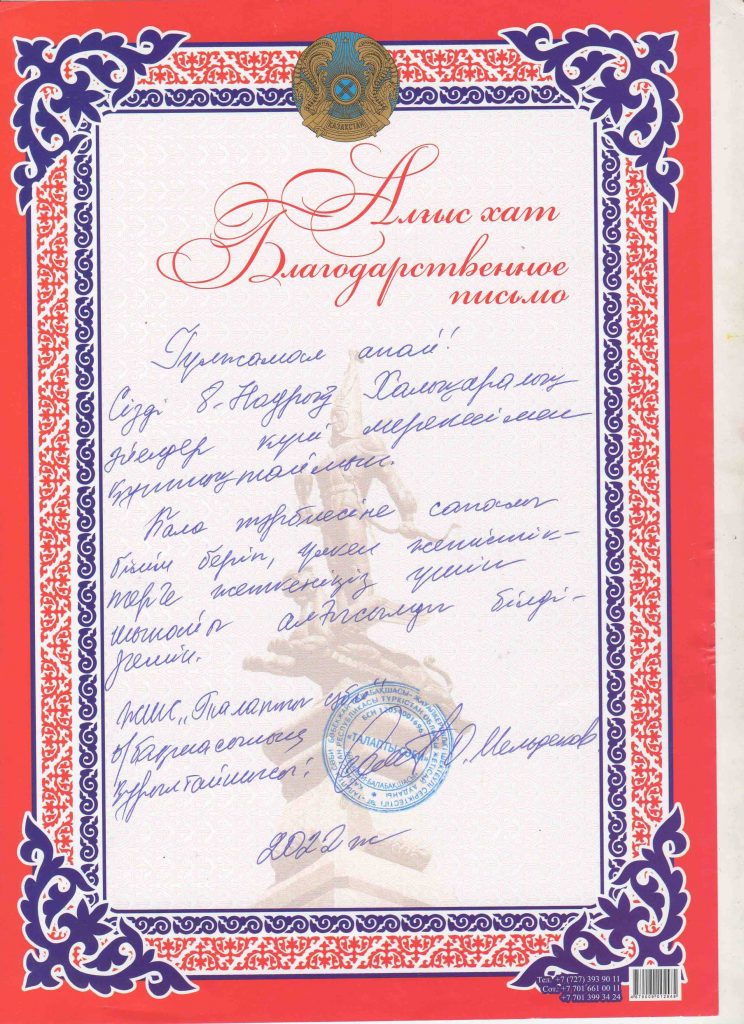 ҚАЗАҚСТАН
Алғыс хат
Благодарственное
письмо
Гүлжамал апай!
Сізді 8-Наурыз Халықаралық
әйелдер күні мерекесімен
құттықтаймын.
Бала тәрбиесіне сапалы
білім беріп, үлкен жетістік-
терге жеткеніңіз үшін
шынайы алғысымды білді-
ремін.
ЖШС "Талапты сәби"
б/бақшасының
құрылтайшысы:
«ТАЛАПТЫ СӘБИ»
2022 ж
Тел.: +7 (727) 393 90 11
Сот.: +7 701 661 00 11
+7 701 399 34 24